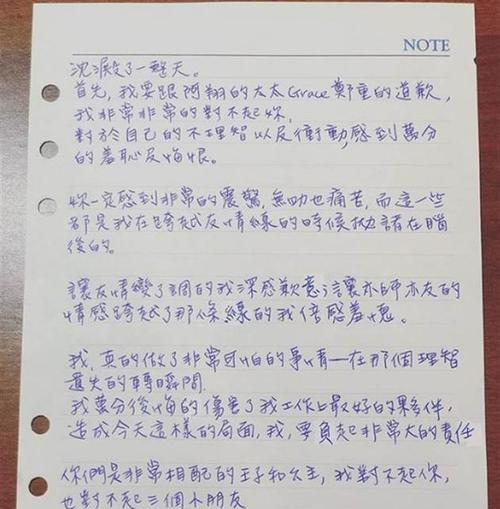 NOTE
沈澱了一整天。
首先，我要跟阿翔的太太Grace鄭重的道歉，
我非常非常的對不起妳，
對於自己的不理智以及衝動，感到萬分
的羞恥及悔恨。
妳一定感到非常的震驚，無助也痛苦，而這一些
都是我在跨越友情線的時候拋諸在腦
後的。
讓友情變了調的我深感歉意；讓亦師亦友的
情感跨越了那條線的我倍感羞愧。
我，真的做了非常可怕的事情—在那個理智
遺失的瞬間
我萬分後悔的傷害了我工作上最好的夥伴，
造成今天這樣的局面，我，要負起非常大的責任
你們是非常相配的王子和公主，我對不起你，
也對不起三個小朋友